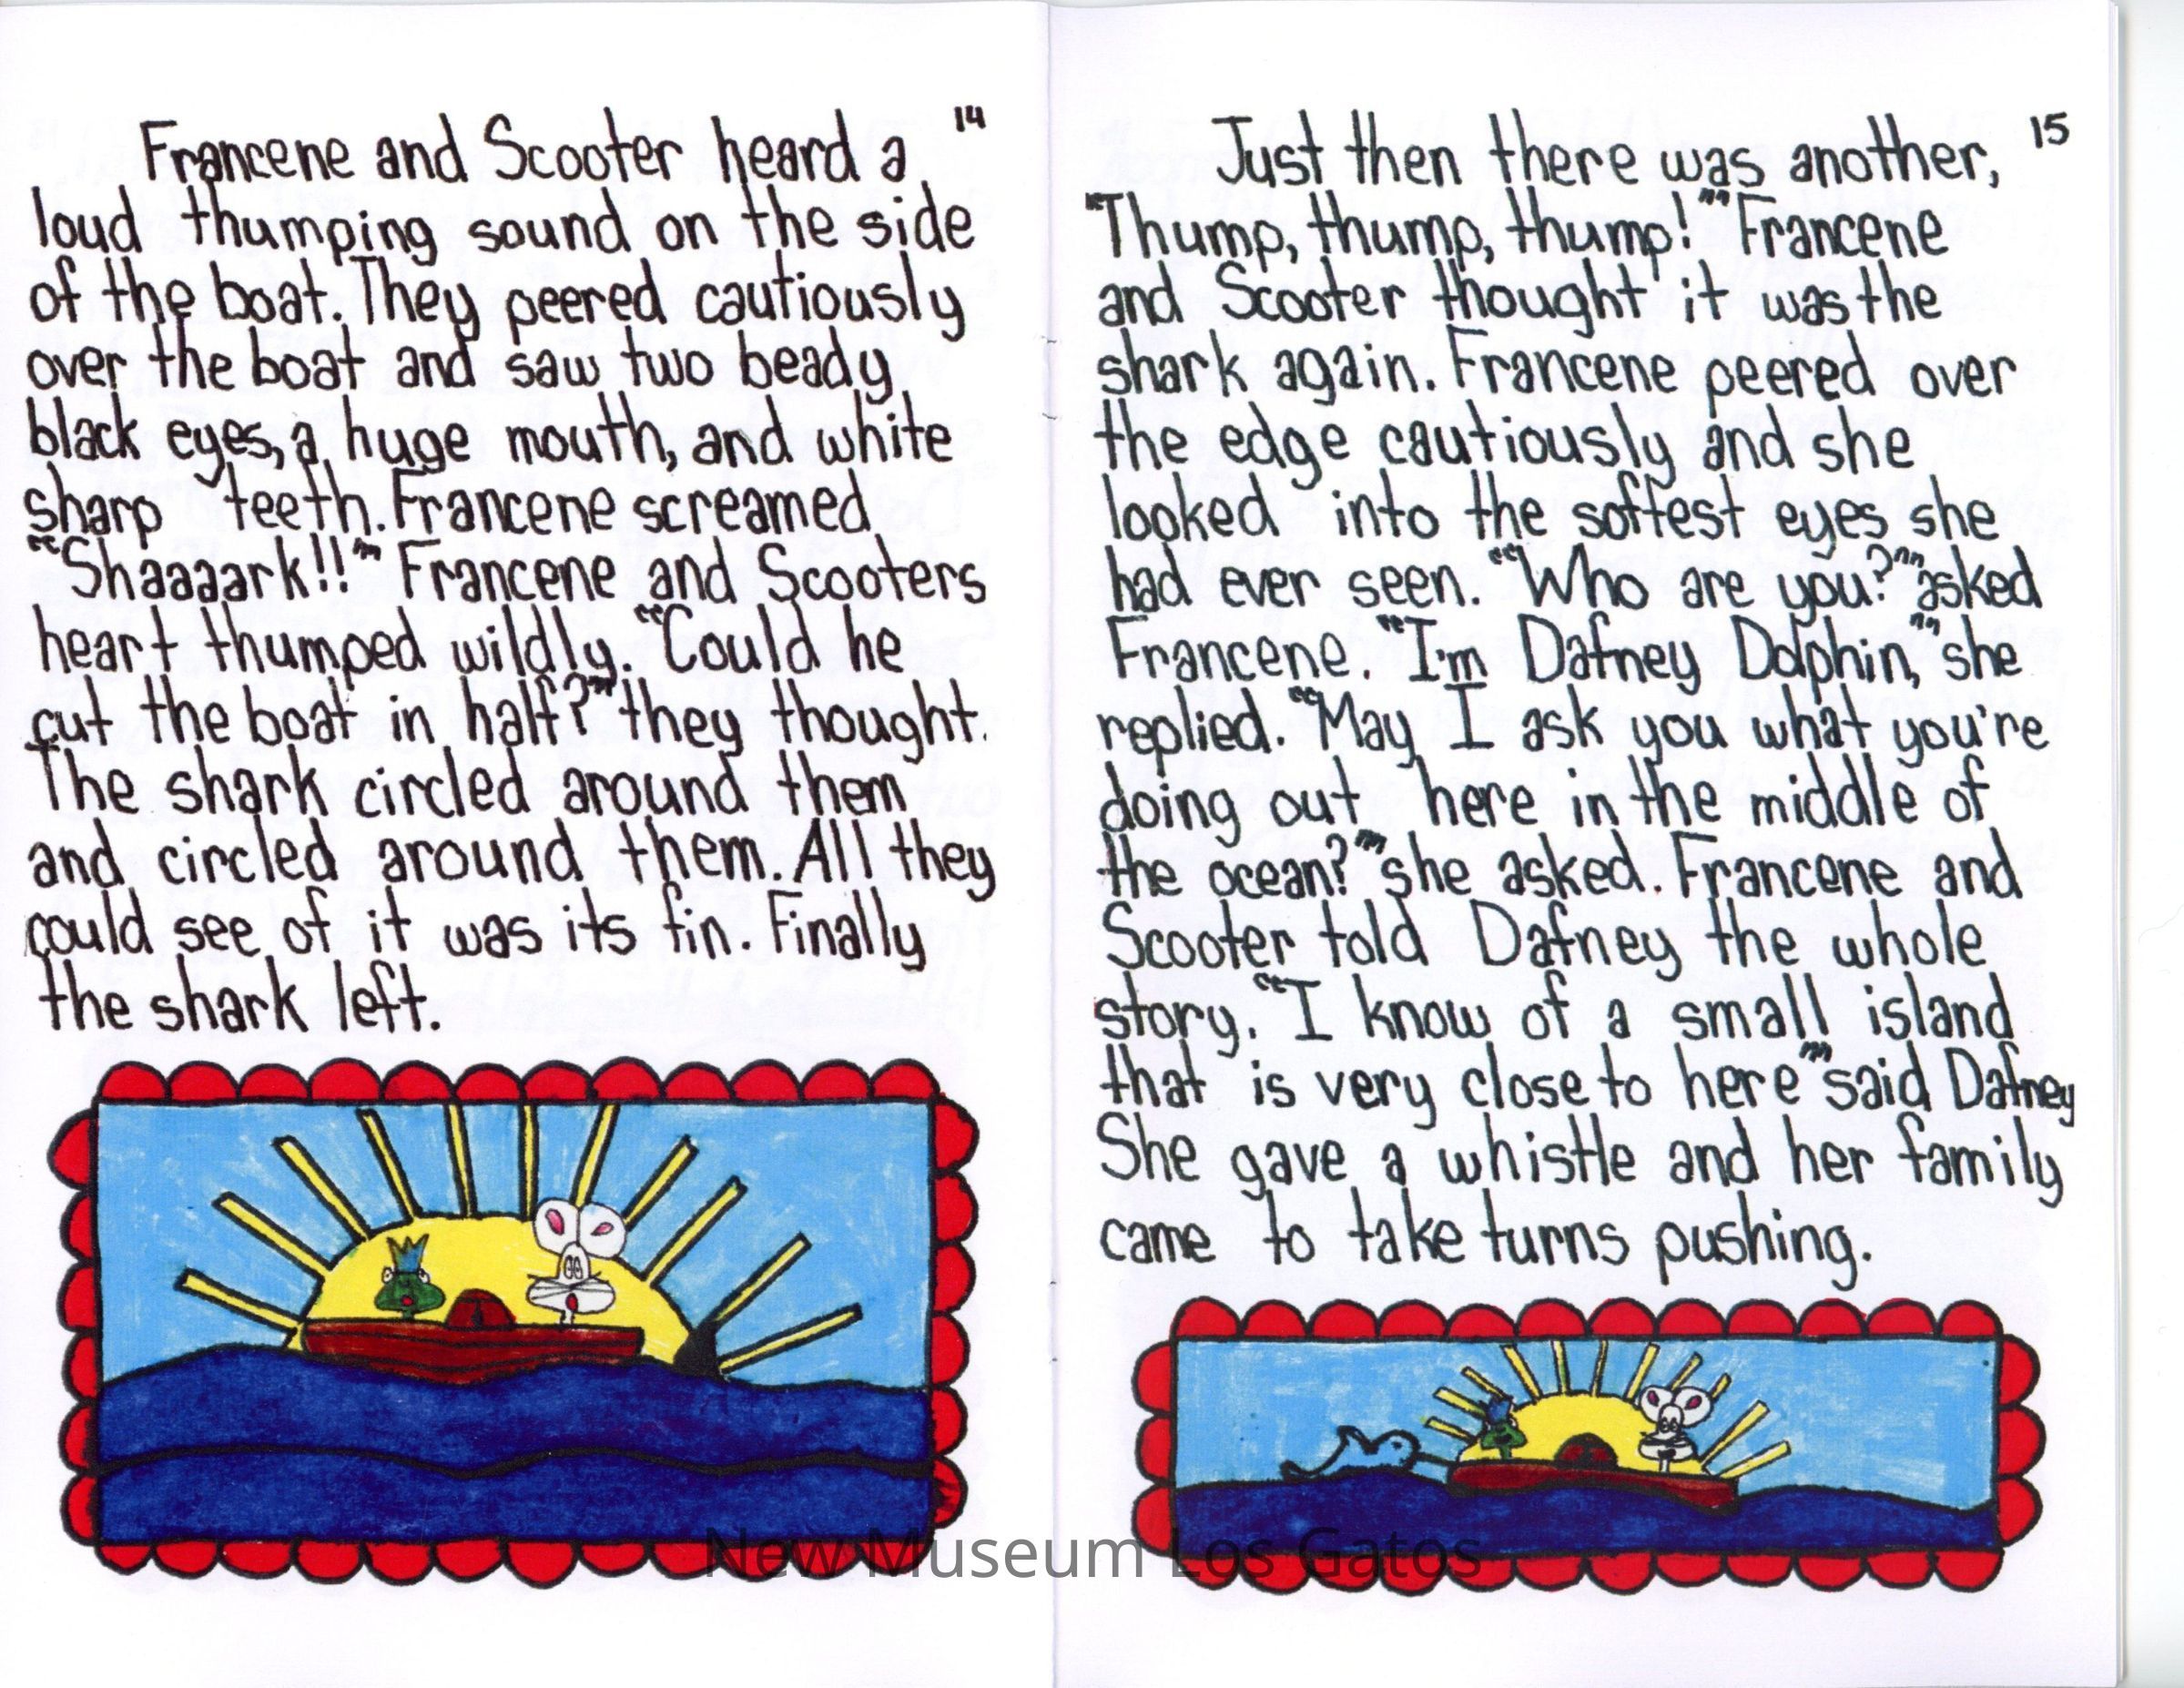 14
Francene and Scooter heard a
loud thumping sound on the side
of the boat. They peered cautiously
over the boat and saw two beady
black eyes, a huge mouth, and white
sharp teeth. Francene screamed
"Shaaaark!!" Francene and Scooters
heart thumped wildly. "Could he
cut the boat in half?" they thought.
The shark circled around them
and circled around them. All they
could see of it was its fin. Finally
the shark left.
15
Just then there was another,
"Thump, thump, thump!" Francene
and Scooter thought it was the
shark again. Francene peered over
the edge cautiously and she
looked into the softest eyes she
had ever seen. "Who are you?" asked
Francene. "I'm Dafney Dolphin," she
replied. "May I ask you what you're
doing out here in the middle of
the ocean?" she asked. Francene and
Scooter told Dafney the whole
story. "I know of a small island
that is very close to here" said Dafney
She gave a whistle and her family
came to take turns pushing.
New Museum Los Gatos